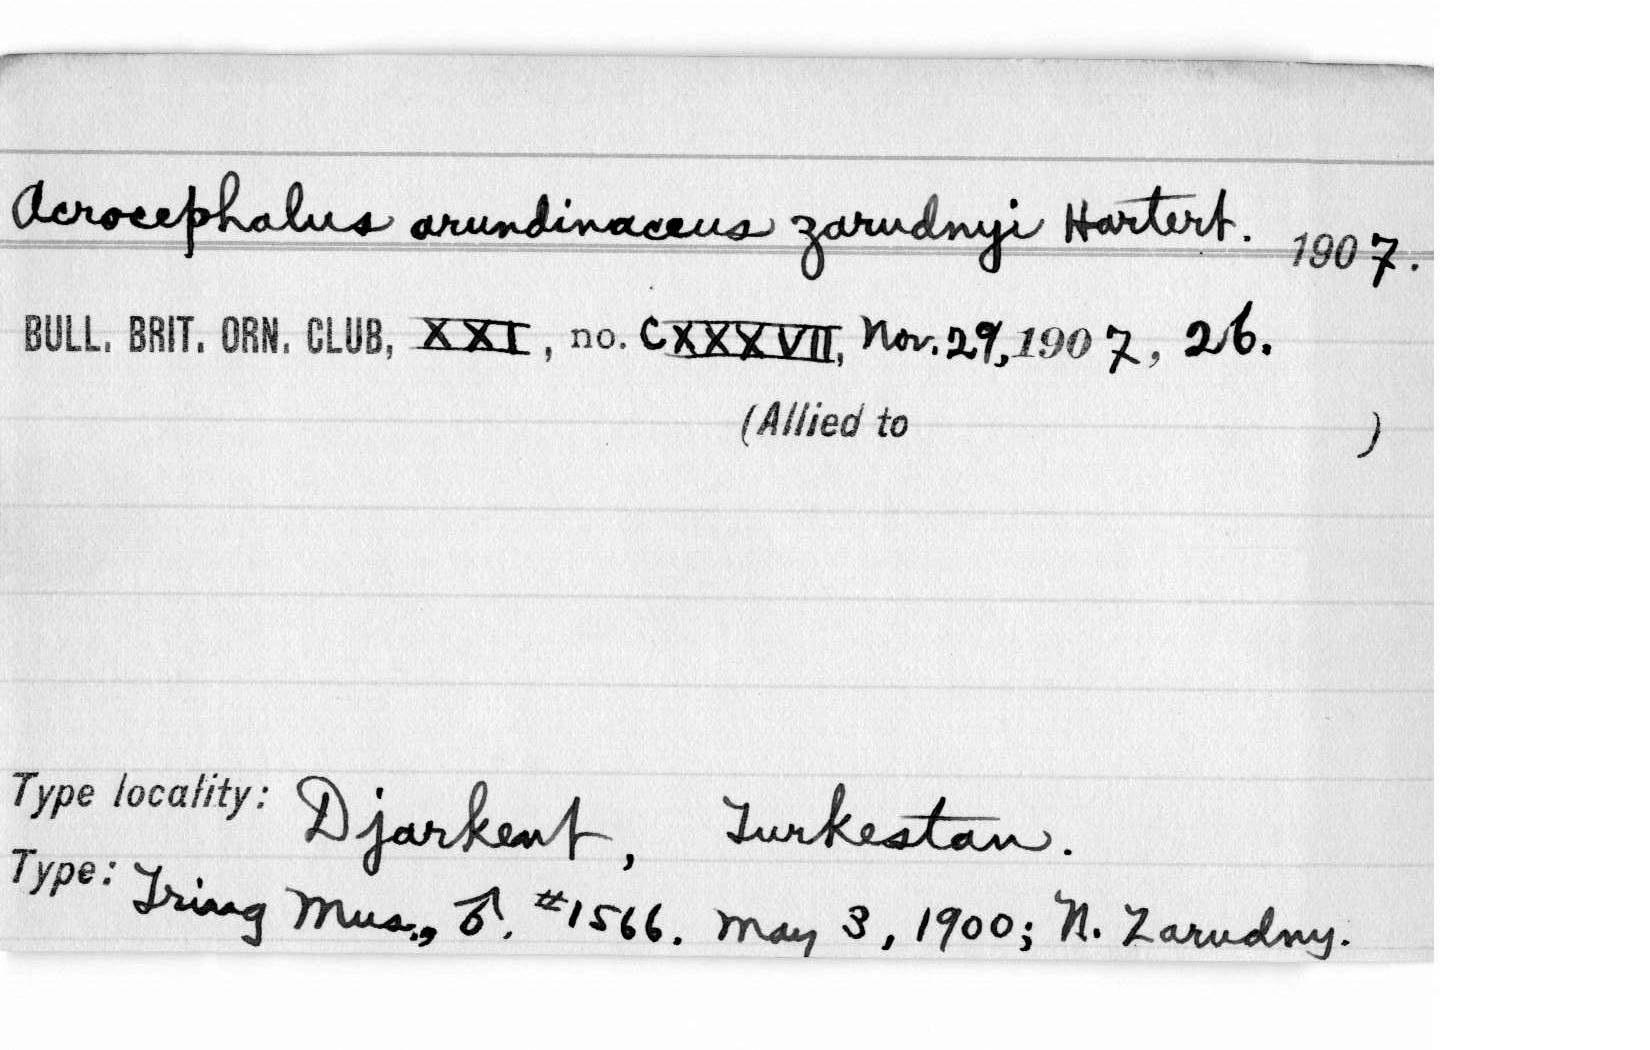 Acrocephalus arundinaceus zarudnyi Hartert. 1907.
BULL. BRIT. ORN. CLUB, XXI, no. CXXXVII, Nov. 29, 1907, 26.
(Allied to )
Type locality: Djarkent, Turkestan.
Type: Tring Mus., ♂. #1566. May 3, 1900; N. Zarudny.